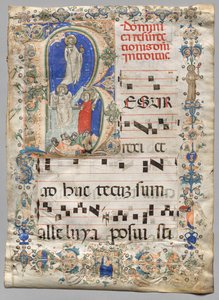 Domini
ca resurrec
tionis domi
ni introitus
R ESUR
rexi et
ad huc tecum sum
alleluya posui sti